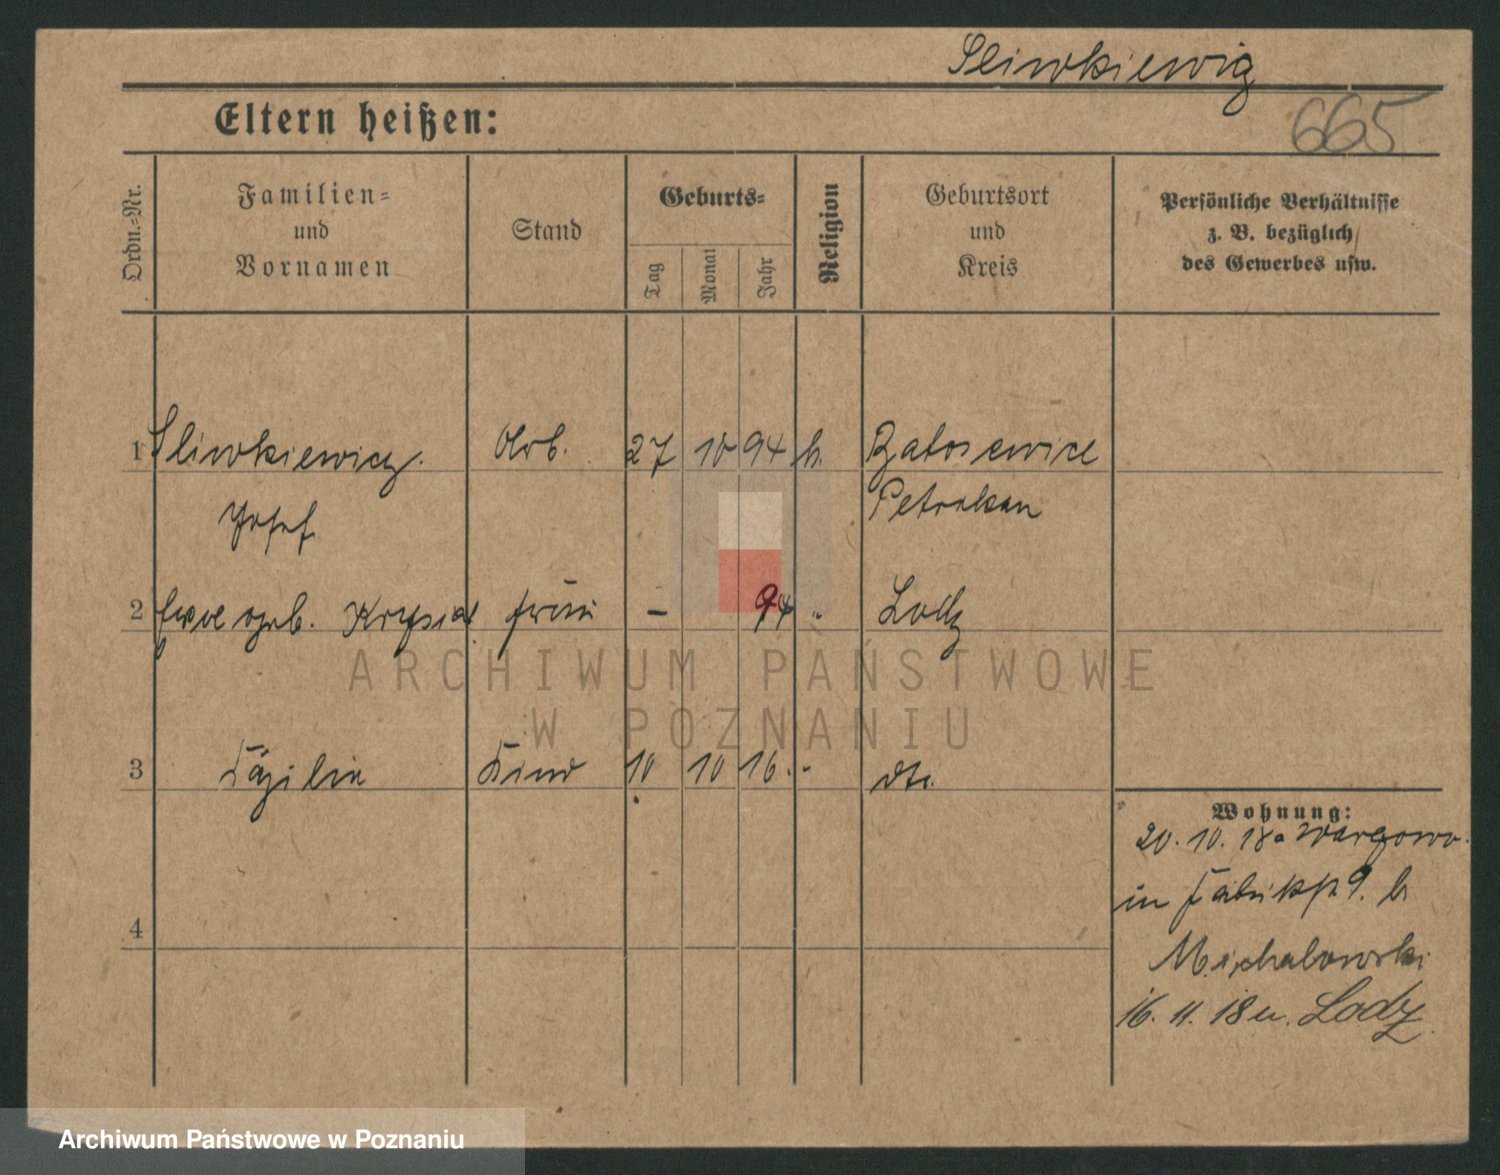 Sliwkiewicz
665
Eltern heißen:
Ordn.-Nr.
Familien-
und
Vornamen
Stand
Geburts-
Tag
Monat
Jahr
Religion
Geburtsort
und
Kreis
Persönliche Verhältnisse
z. B. bezüglich
des Gewerbes usw.
1 Sliwkiewicz. Arb. 27 10 94 k.
Petrokau
Josef
2 geb. Frau — 94 " Lodz
3 Cäzilie Kind 10 10 16. " dto.
4
Wohnung:
20. 10. 18 a Wargowo.
in 9. b
Michalowski
16. 11. 18 n. Lodz.
ARCHIWUM PAŃSTWOWE
W POZNANIU
Archiwum Państwowe w Poznaniu